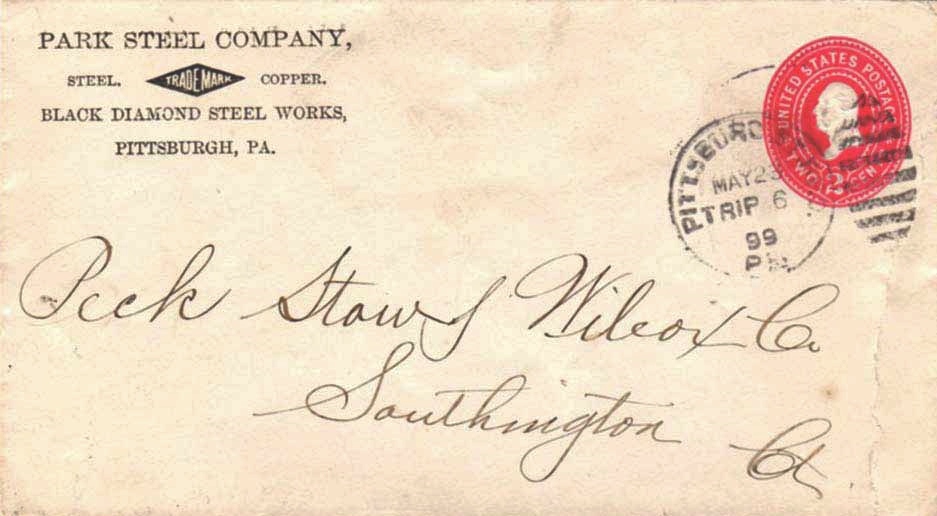 PARK STEEL COMPANY,
STEEL. TRADE MARK COPPER.
BLACK DIAMOND STEEL WORKS,
PITTSBURGH, PA.
UNITED STATES POSTAGE
TWO 2 CENTS
PITTSBURG
MAY 23
TRIP 6
99
PA.
Peck Stow & Wilcox Co
Southington Ct